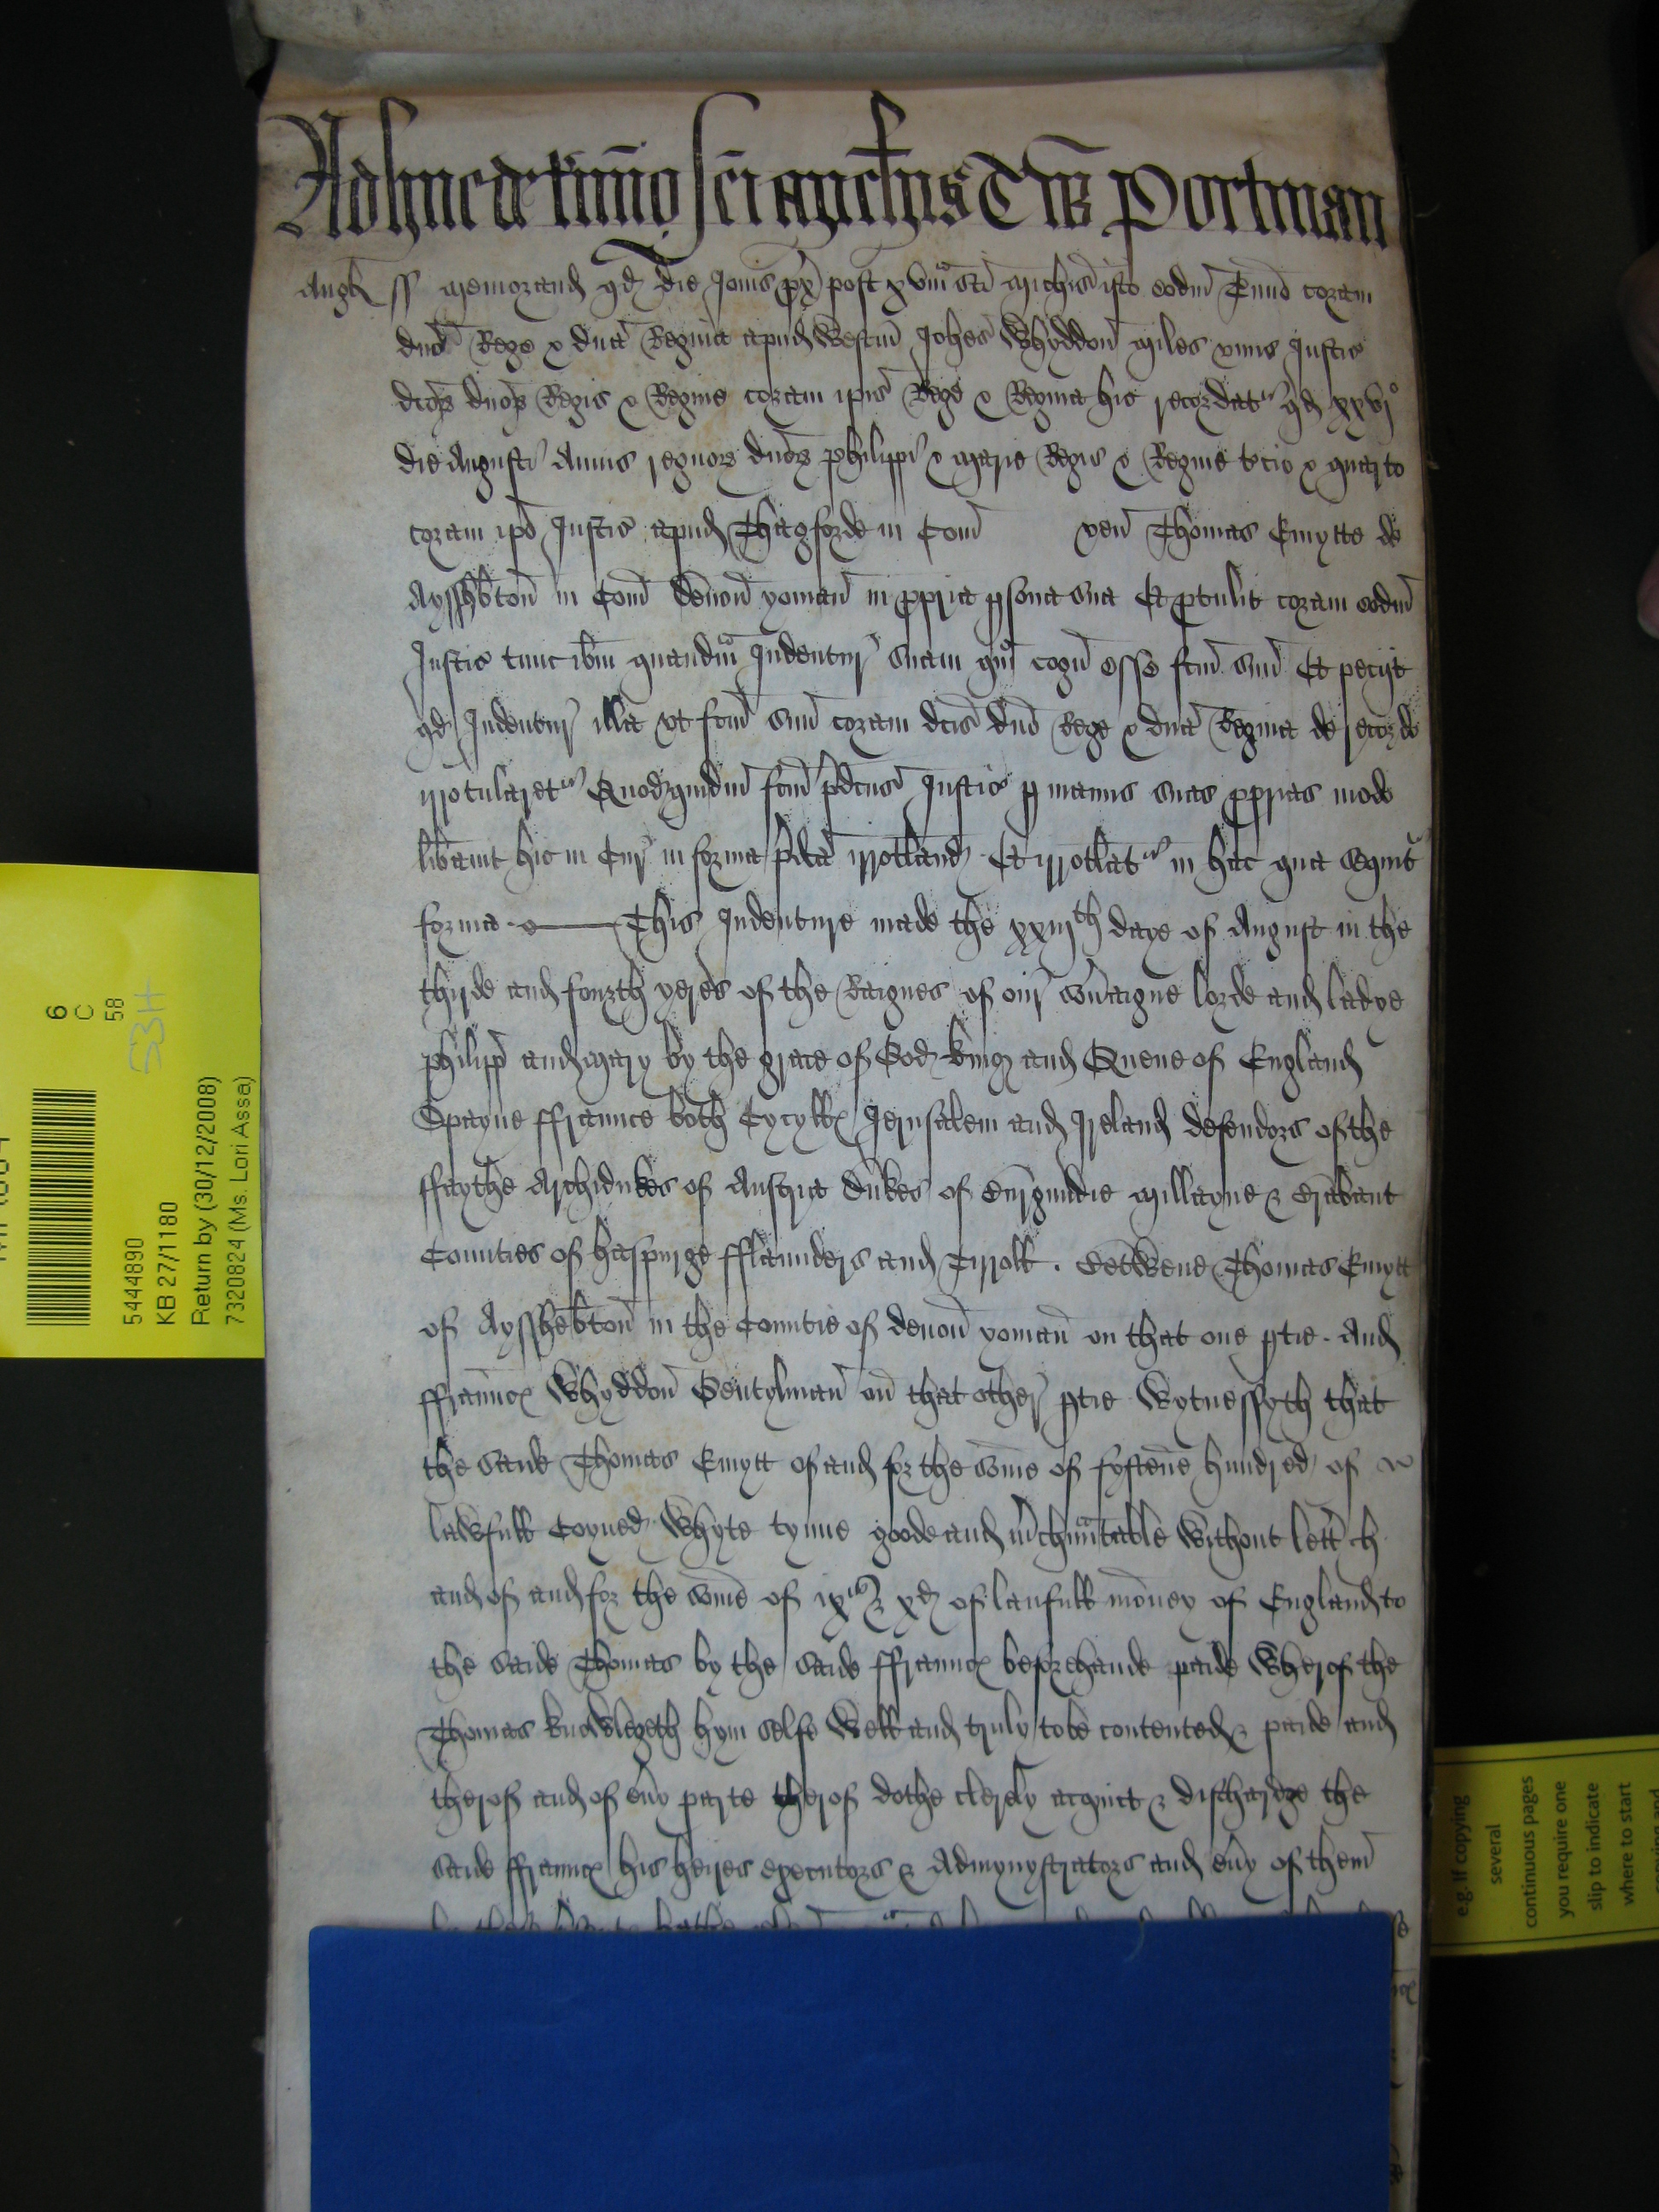 Adhuc de t'mino sci Mich'is T W Portman
Angl ss Memorand qd die Jovis px post xvm sci Mich'is isto eodm T'mio coram
dno Rege & dna Regina apud Westm Johes Whyddon Miles unus Justic
dcoz dnoz Regis & Regine coram ipis Rege & Regina hic recordat' qd xxvjo
die Augusti Annis regnoz dnoz Philippi & Marie Regis & Regine t'cio & quarto
coram ipo Justic apud Thagforde in Com ven Thomas Emytte de
Aysshb'ton in Com Devon yoman in ppria psona sua Et ptulit coram eodm
Justic tunc ibm quandm Indentur suam qm cogn esse fcm suu Et peciit
qd Indentur illa ut fcm suu coram dcis dno Rege & dna Regina de recordo
irrotularet' Quodquidm fcm pdcus Justic p manus suas pprias modo
lib'avit hic in Cur in forma pdca irrotland Et irrotlat' in hac que sequit'
forma This Indenture made the xxiijth daye of August in the
thyrde and fourth yeres of the Raignes of our sov'aigne lorde and ladye
Philipp and Mary by the grace of God king and Quene of England
Spayne ffraunce both Cycyll Jerusalem and Ireland defendors of the
ffaythe Archidukes of Austria dukes of Burgundie Millayne & Brabant
Counties of haspurge fflaunders and Tirroll . Betwene Thomas Emytt
of Ayssheb'ton in the Countie of devon yoman on that one ptie . And
ffraunc Whyddon Gentylman on that other ptie Wytnessyth that
the saide Thomas Emytt of and for the some of fyftene hundred of
lawfull Coyned Whyte tynne goode and m'chuntable without lett' ch
and of and for the some of ixli & xd of laufull money of England to
the saide Thomas by the saide ffraunc beforehande paide wherof the
Thomas knowlegeth hym selfe well and truly to be contented & paide and
therof and of ev'y parte therof dothe clerely acquict & discharge the
saide ffraunc his heires executors & Admynystrators and ev'y of them
6
C
58
53H
5444890
KB 27/1180
Return by (30/12/2008)
7320824 (Ms. Lori Assa)
e.g. If copying
several
continuous pages
you require one
slip to indicate
where to start
copying and